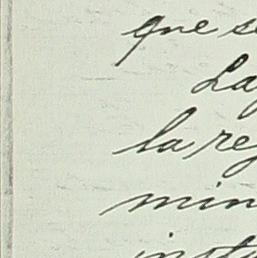 que se
La
la re
min
insta